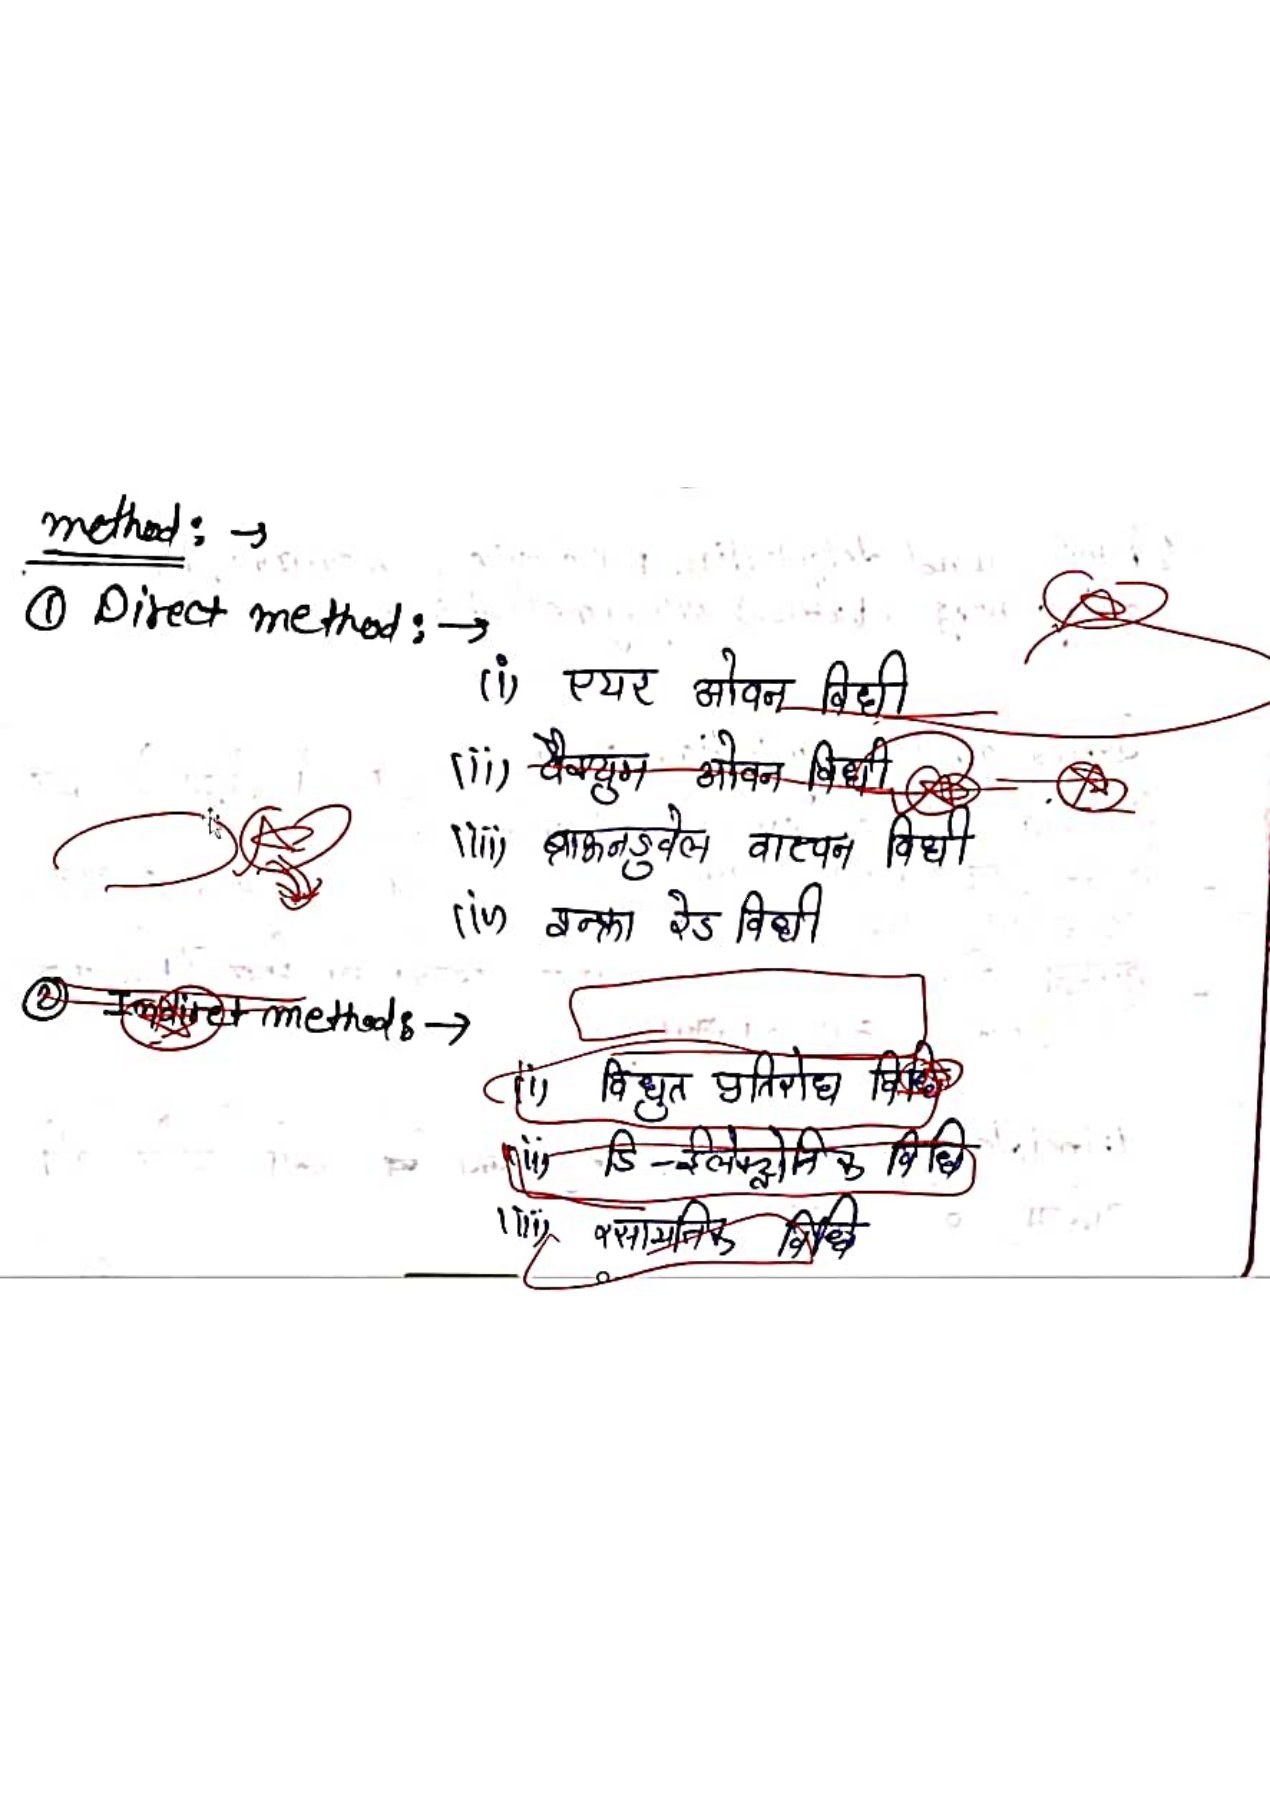 method:→
① Direct method:→
(i) एयर ओवन विधी
(ii) वैक्युम ओवन विधी
(iii) ब्राऊनडुवेल वाष्पन विधी
(iv) इन्फ्रा रेड विधी
② Indirect method:→
(i) विधुत प्रतिरोध विधि
(ii) डि-ईलेक्ट्रोनिक विधि
(iii) रसायनिक विधि